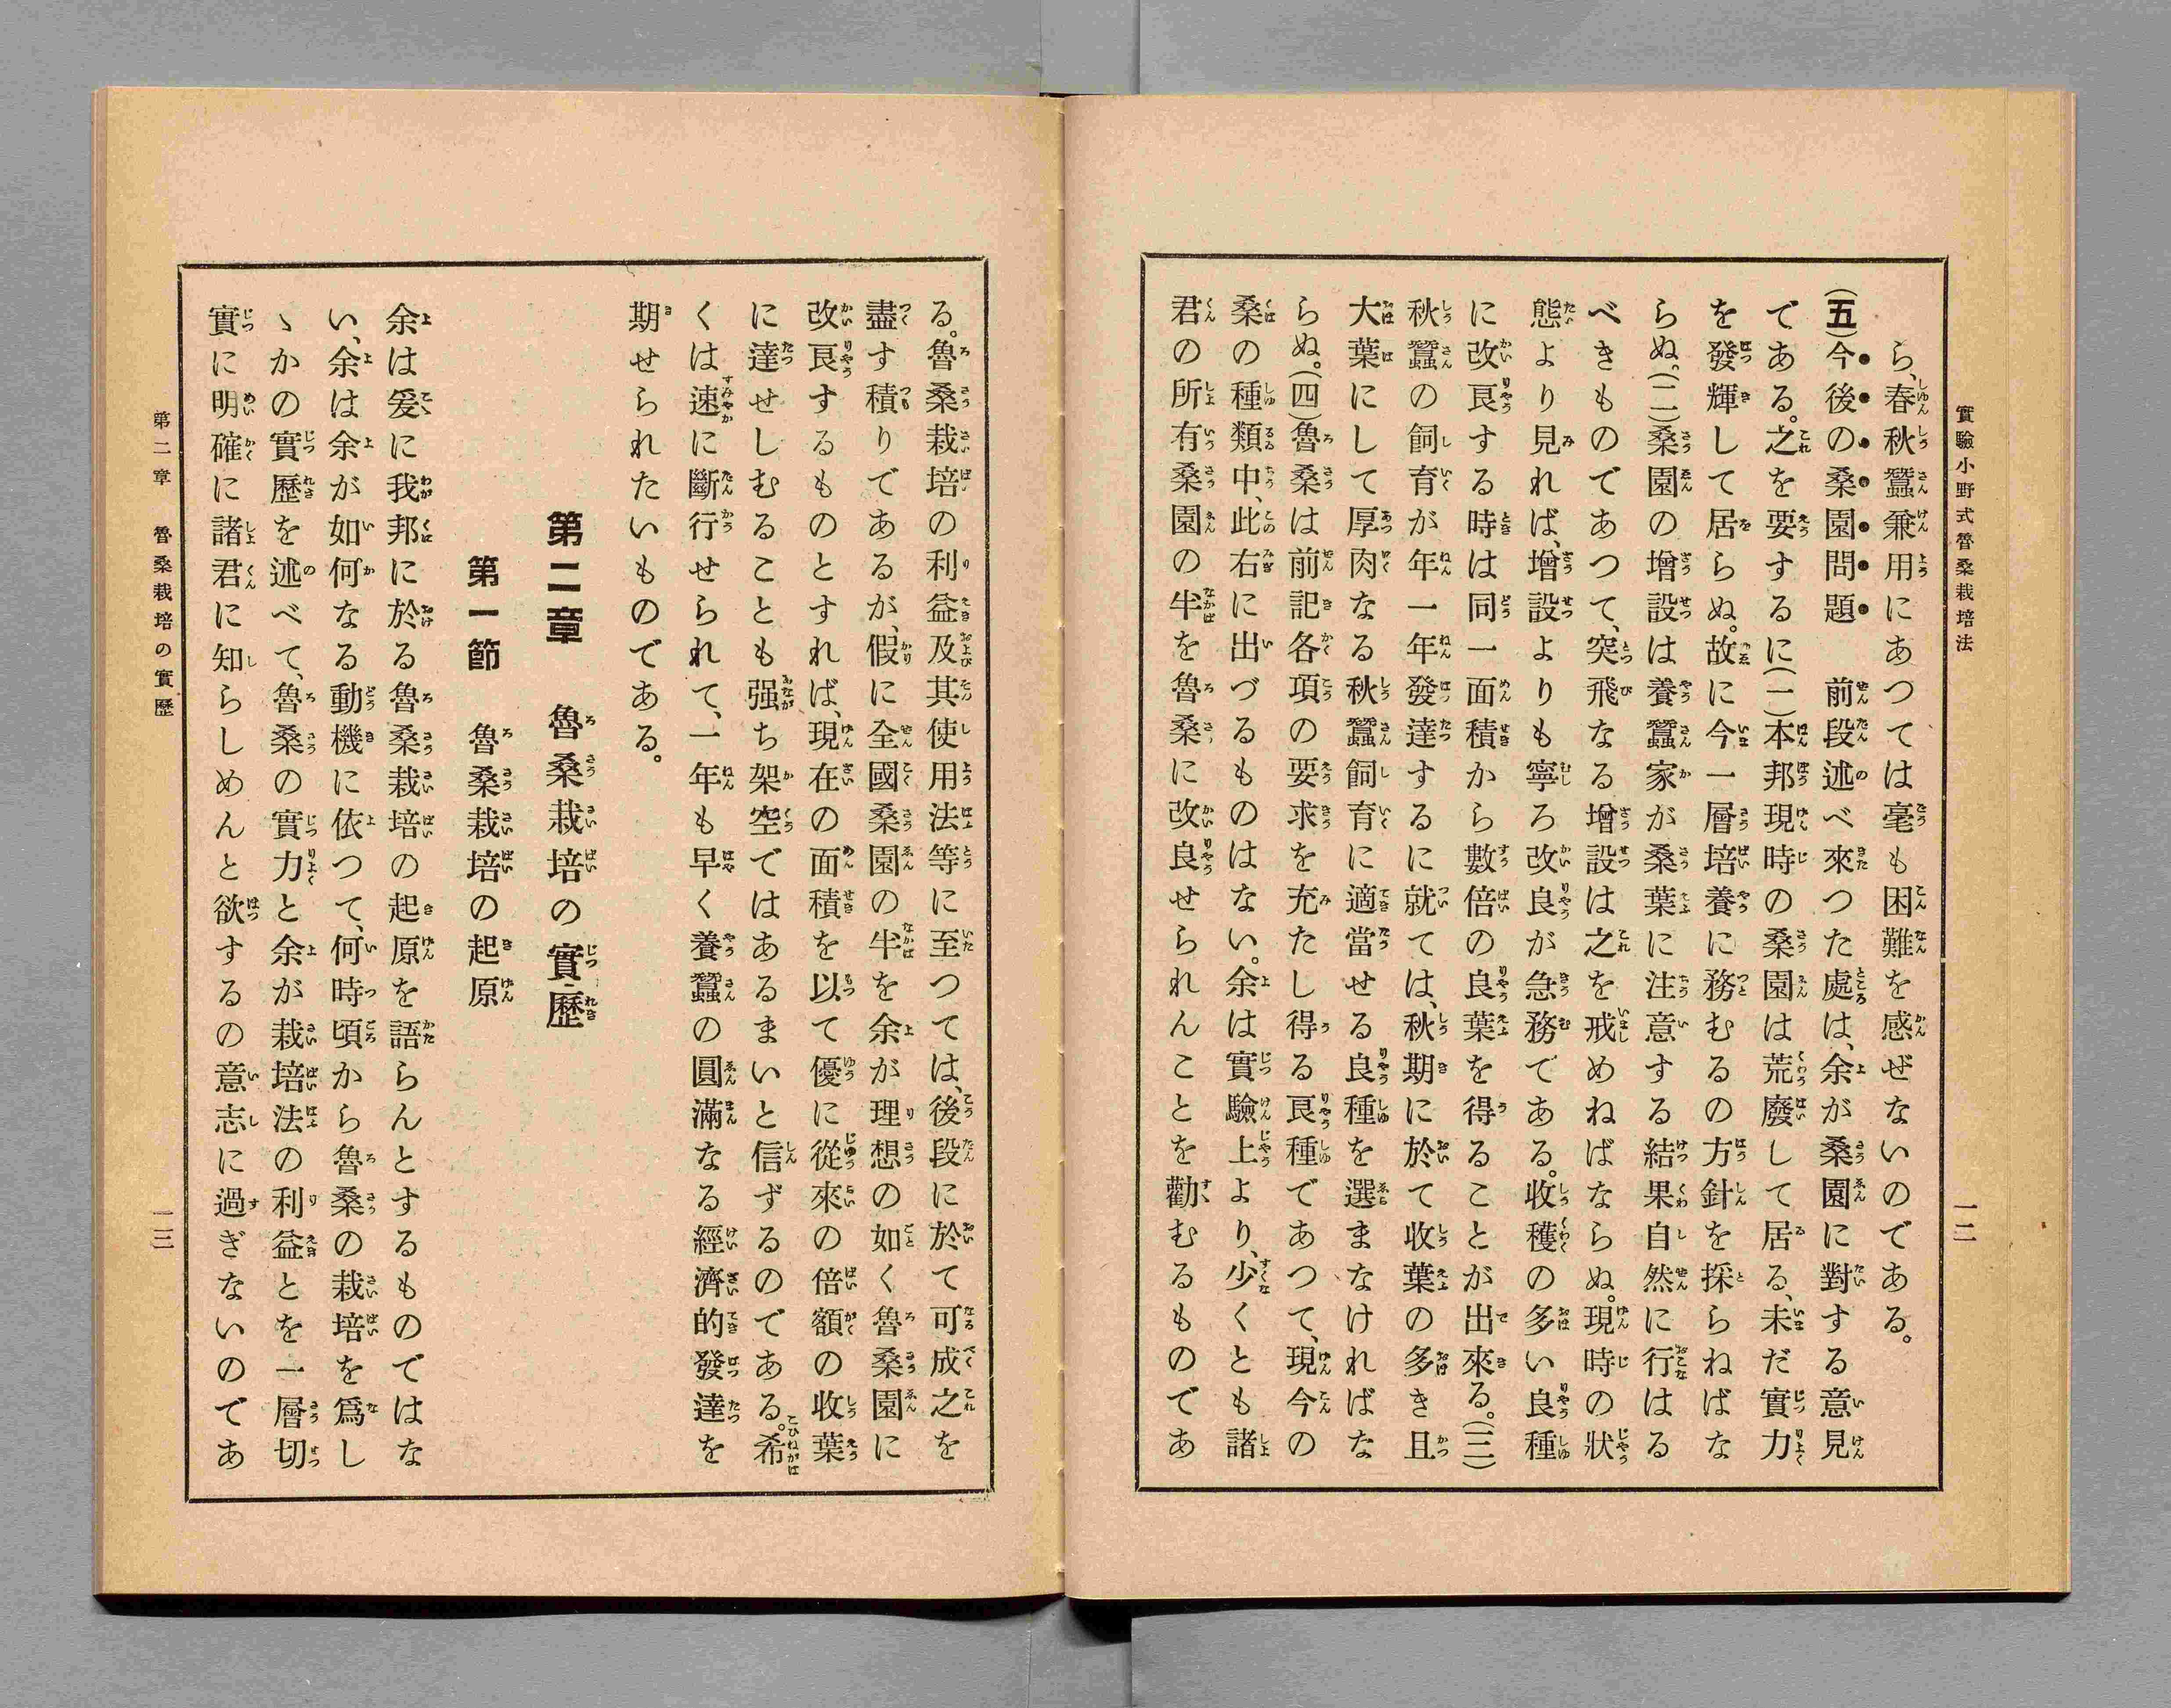 實驗小野式魯桑栽培法
一二
ら、春秋蠶兼用にあつては毫も困難を感ぜないのである。
(五)今後の桑園問題　前段述べ來つた處は、余が桑園に對する意見
である。之を要するに(一)本邦現時の桑園は荒廢して居る、未だ實力
を發輝して居らぬ。故に今一層培養に務むるの方針を採らねばな
らぬ。(二)桑園の增設は養蠶家が桑葉に注意する結果自然に行はる
べきものであつて、突飛な增設は之を戒めねばならぬ。現時の狀
態より見れば、增設よりも寧ろ改良が急務である。收穫の多い良種
に改良する時は同一面積から數倍の良葉を得ることが出來る。(三)
秋蠶の飼育が年一年發達するに就ては、秋期に於て收葉の多き且
大葉にして厚肉なる秋蠶飼育に適當せる良種を選まなければな
らぬ。(四)魯桑は前記各項の要求を充たし得る良種であつて、現今の
桑の種類中、此右に出づるものはない。余は實驗上より、少くとも諸
君の所有桑園の半を魯桑に改良せられんことを勸むるものであ
る。魯桑栽培の利益及其使用法等に至つては、後段に於て可成之を
盡す積りであるが、假に全國桑園の半を余が理想の如く魯桑園に
改良するものとすれば、現在の面積を以て優に從來の倍額の收葉
に達せしむることも强ち架空ではあるまいと信ずるのである。希
くは速に斷行せられて、一年も早く養蠶の圓滿なる經濟的發達を
期せられたいものである。
第二章　魯桑栽培の實歷
第一節　魯桑栽培の起原
余は爰に我邦に於る魯桑栽培の起原を語らんとするものではな
い、余は余が如何なる動機に依つて、何時頃から魯桑の栽培を爲し
ゝかの實歷を述べて、魯桑の實力と余が栽培法の利益とを一層切
實に明確に諸君に知らしめんと欲するの意志に過ぎないのであ
第二章　魯桑栽培の實歷
一三